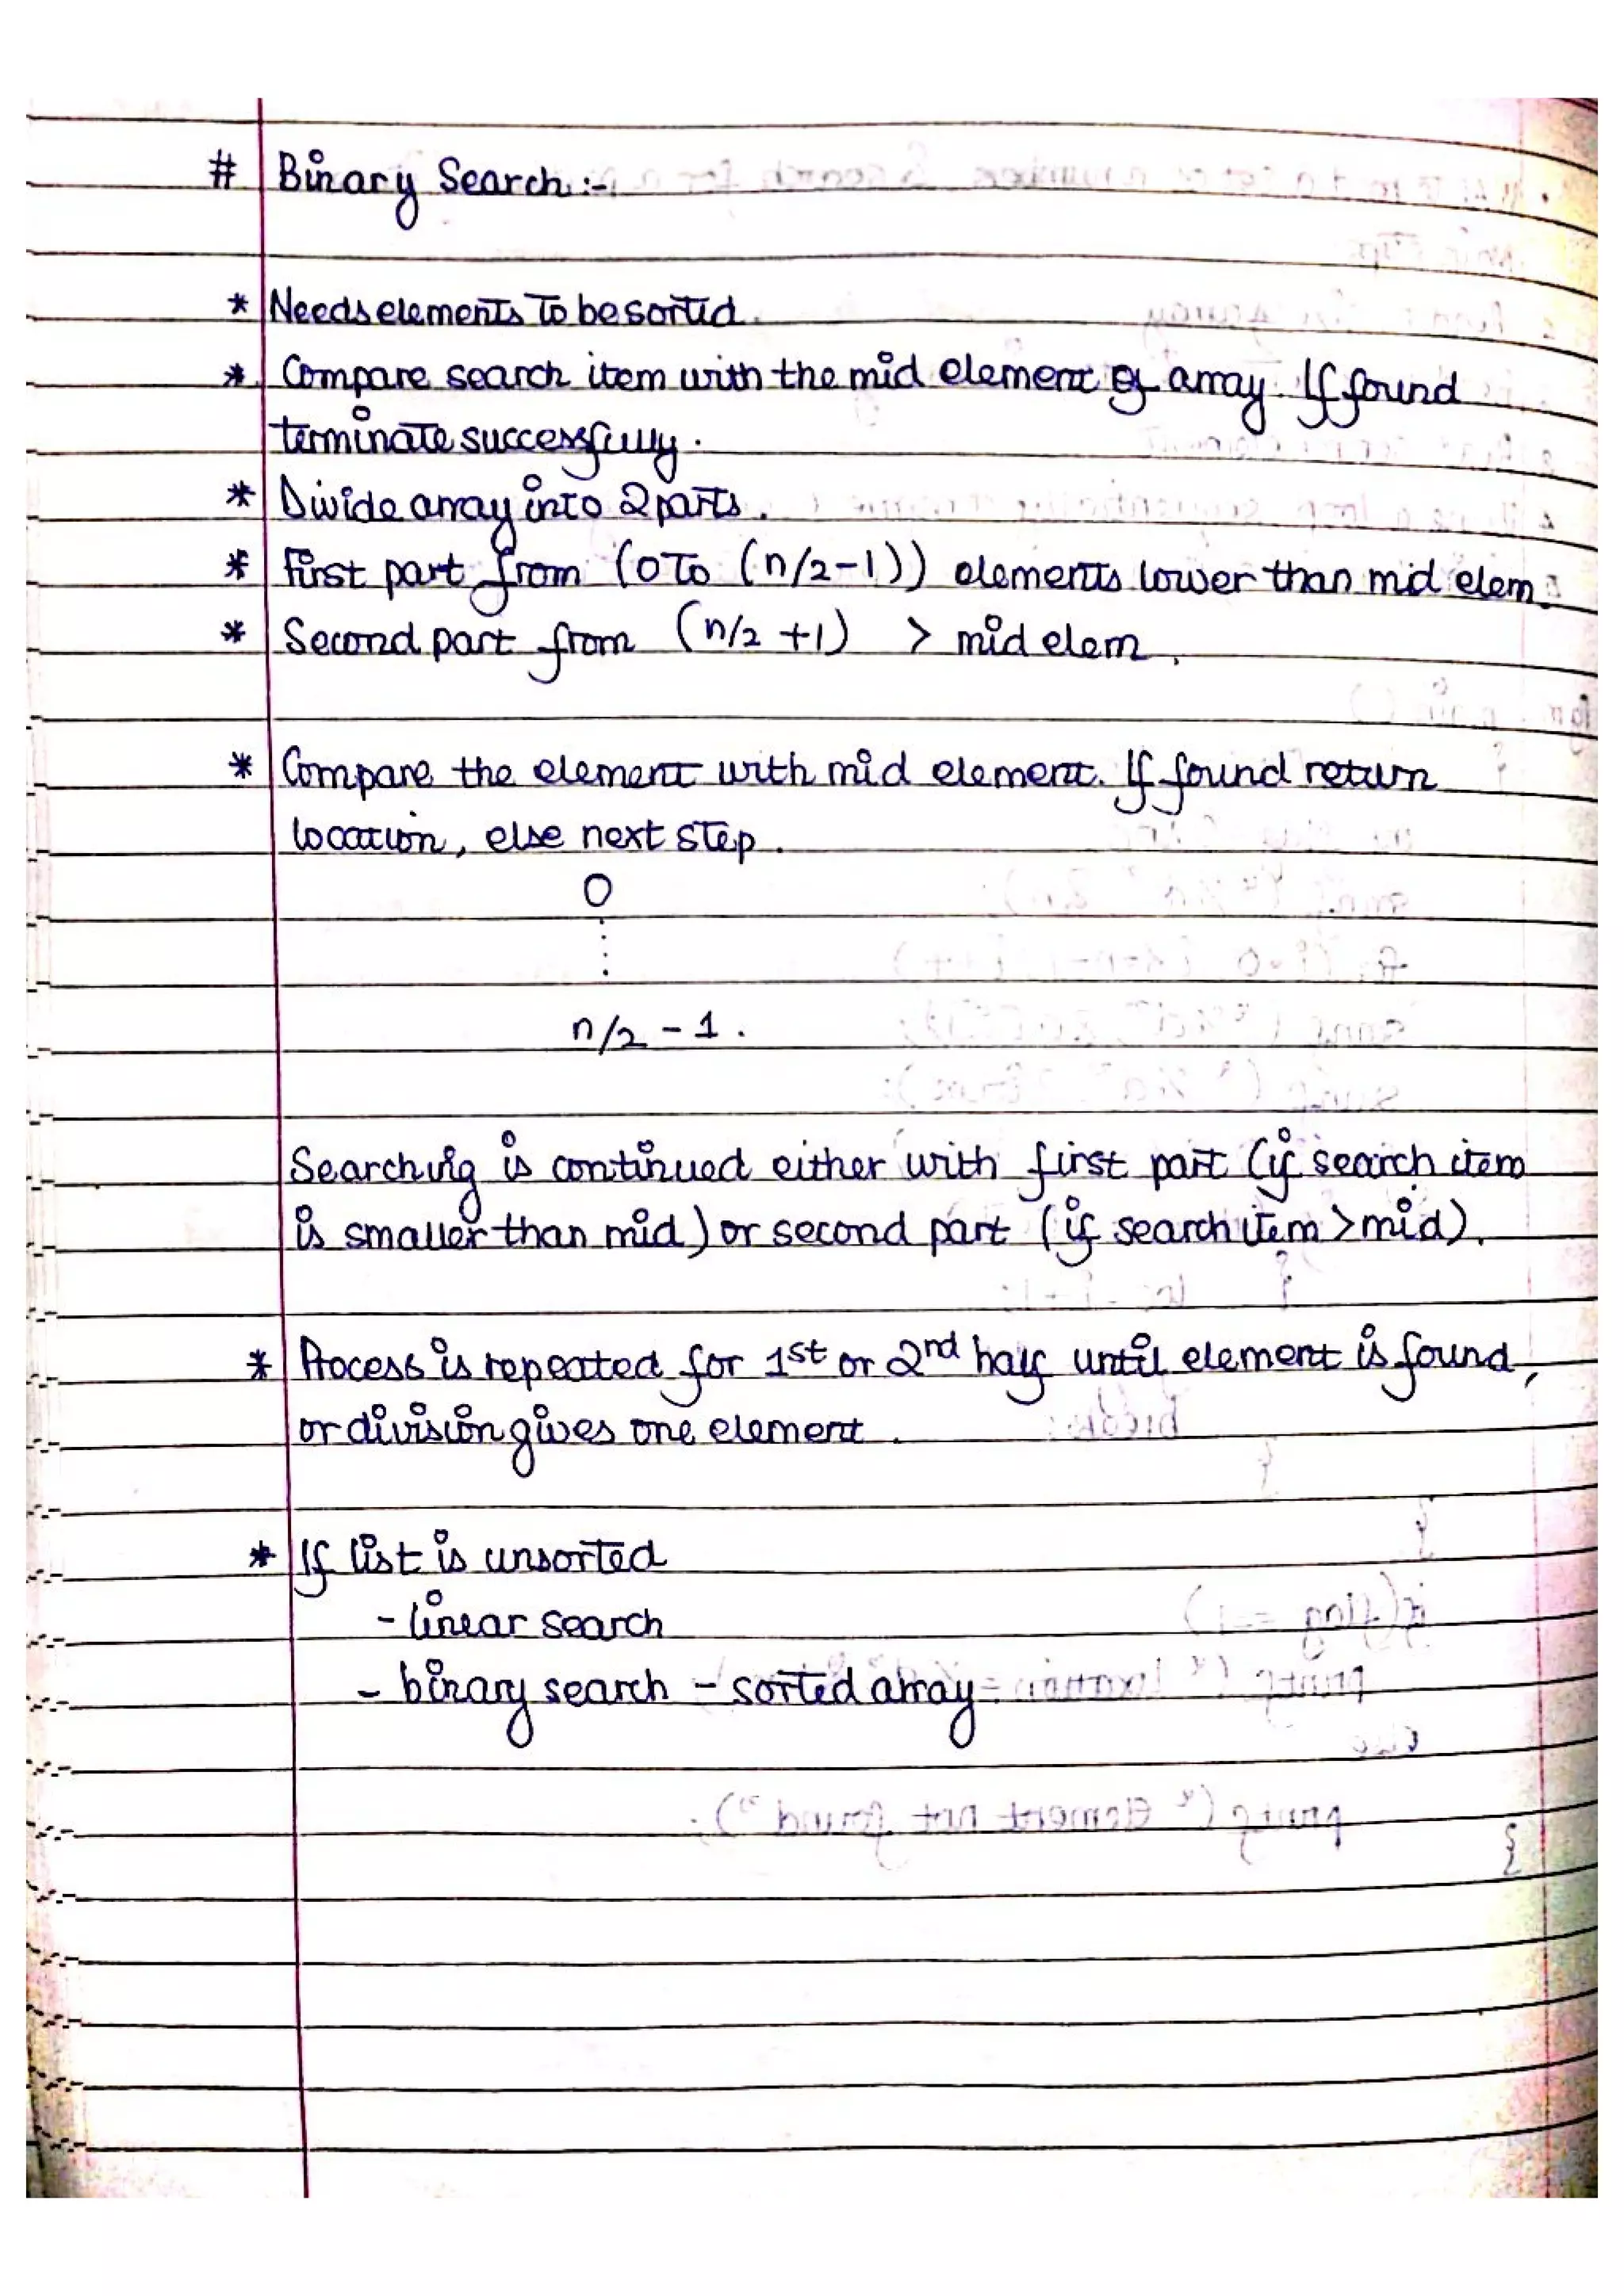 # Binary Search :-
* Needs elements to be sorted.
* Compare search item with the mid element of array. If found
terminate successfully.
* Divide array into 2 parts.
* First part from (0 to (n/2-1)) elements lower than mid elem.
* Second part from (n/2 +1) > mid elem.
* Compare the element with mid element. If found return
location, else next step.
0
⋮
n/2 - 1.
Searching is continued either with first part (if search item
is smaller than mid) or second part (if search item > mid).
* Process is repeated for 1st or 2nd half until element is found,
or division gives one element.
* If list is unsorted
- linear search
- binary search - sorted array